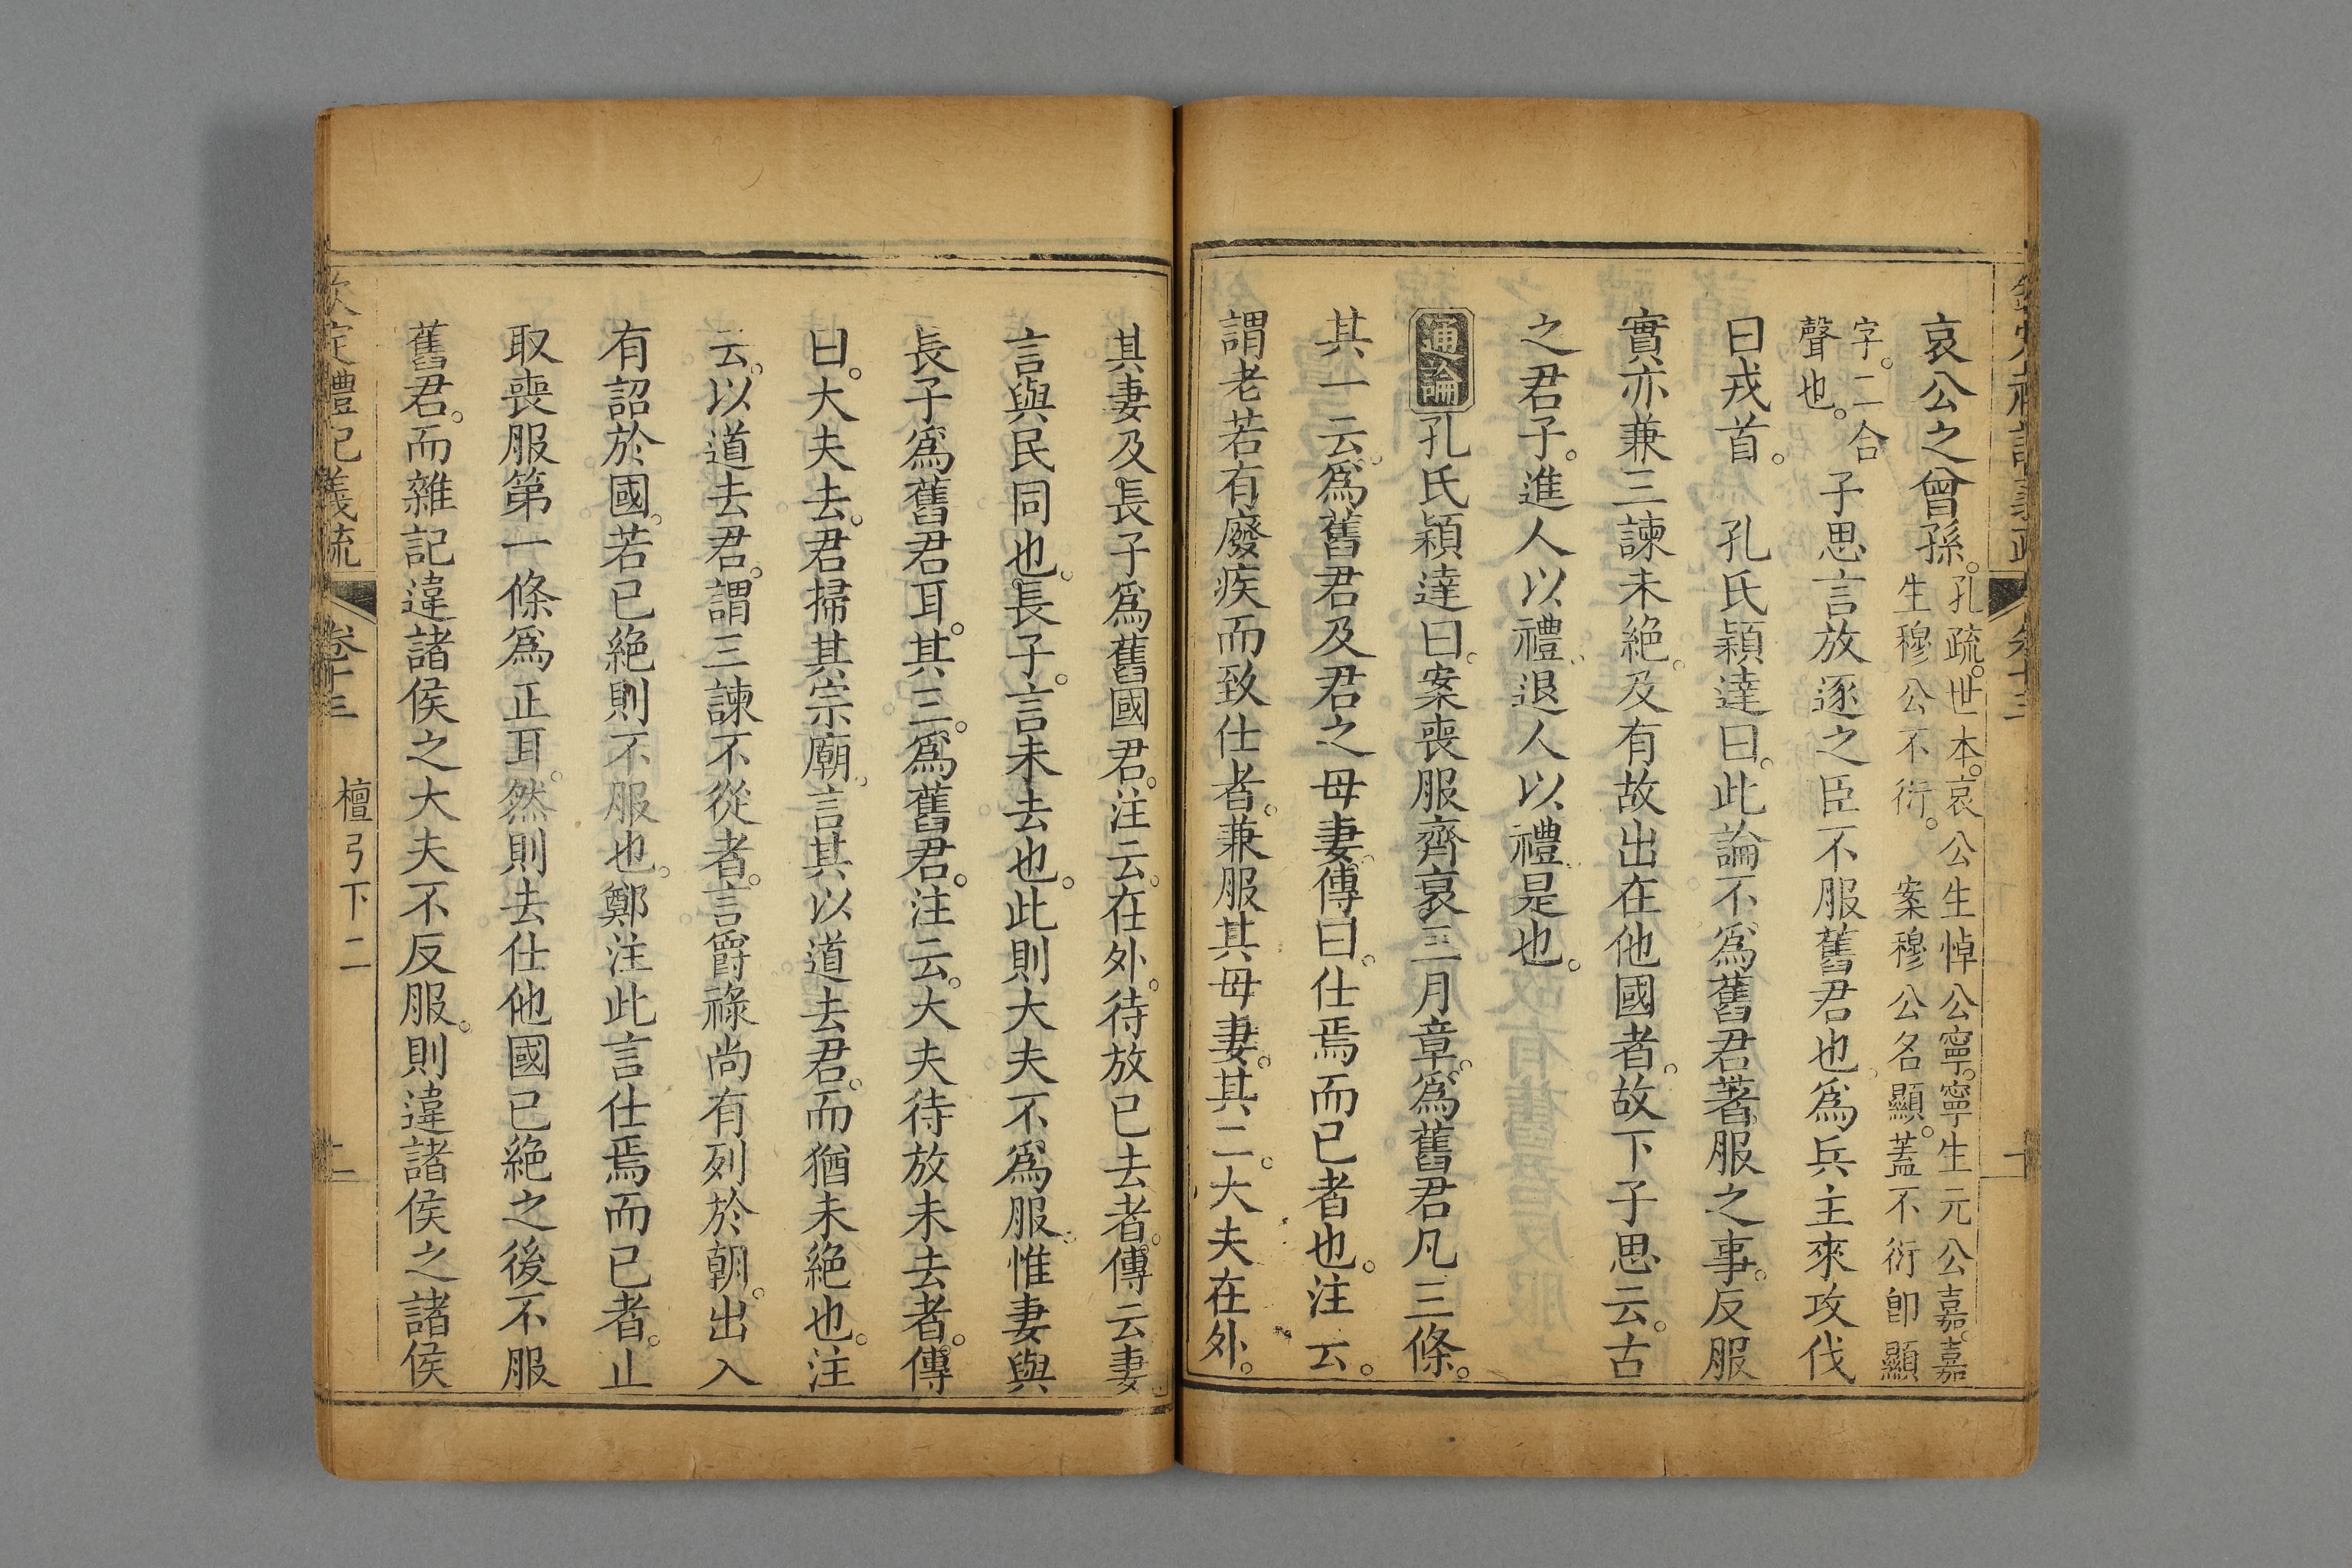 哀公之曾孫。孔疏。世本。哀公生悼公寧。寧生元公嘉。嘉生穆公不衍。　案穆公名顯。蓋不衍卽顯
字。二合聲也。　子思言放逐之臣不服舊君也爲兵主來攻伐
曰戎首。　孔氏穎達曰。此論不爲舊君著服之事。反服
實亦兼三諫未絶。及有故出在他國者。故下子思云。古
之君子。進人以禮。退人以禮是也。
通論孔氏穎達曰。案喪服齊衰三月章。爲舊君凡三條。
其一云。爲舊君及君之母妻。傳曰。仕焉而已者也。注云。
謂老若有廢疾而致仕者。兼服其母妻。其二。大夫在外。
其妻及長子爲舊國君。注云。在外。待放已去者。傳云妻
言與民同也。長子。言未去也。此則大夫不爲服。惟妻與
長子爲舊君耳。其三。爲舊君。注云。大夫待放未去者。傳
曰。大夫去。君掃其宗廟。言其以道去君。而猶未絶也。注
云。以道去君。謂三諫不從者。言爵祿尚有列於朝。出入
有詔於國。若已絶則不服也。鄭注此言仕焉而已者。止
取喪服第一條爲正耳。然則去仕他國已絶之後不服
舊君。而雜記違諸侯之大夫不反服。則違諸侯之諸侯
欽定禮記義疏　卷十三　檀弓下二